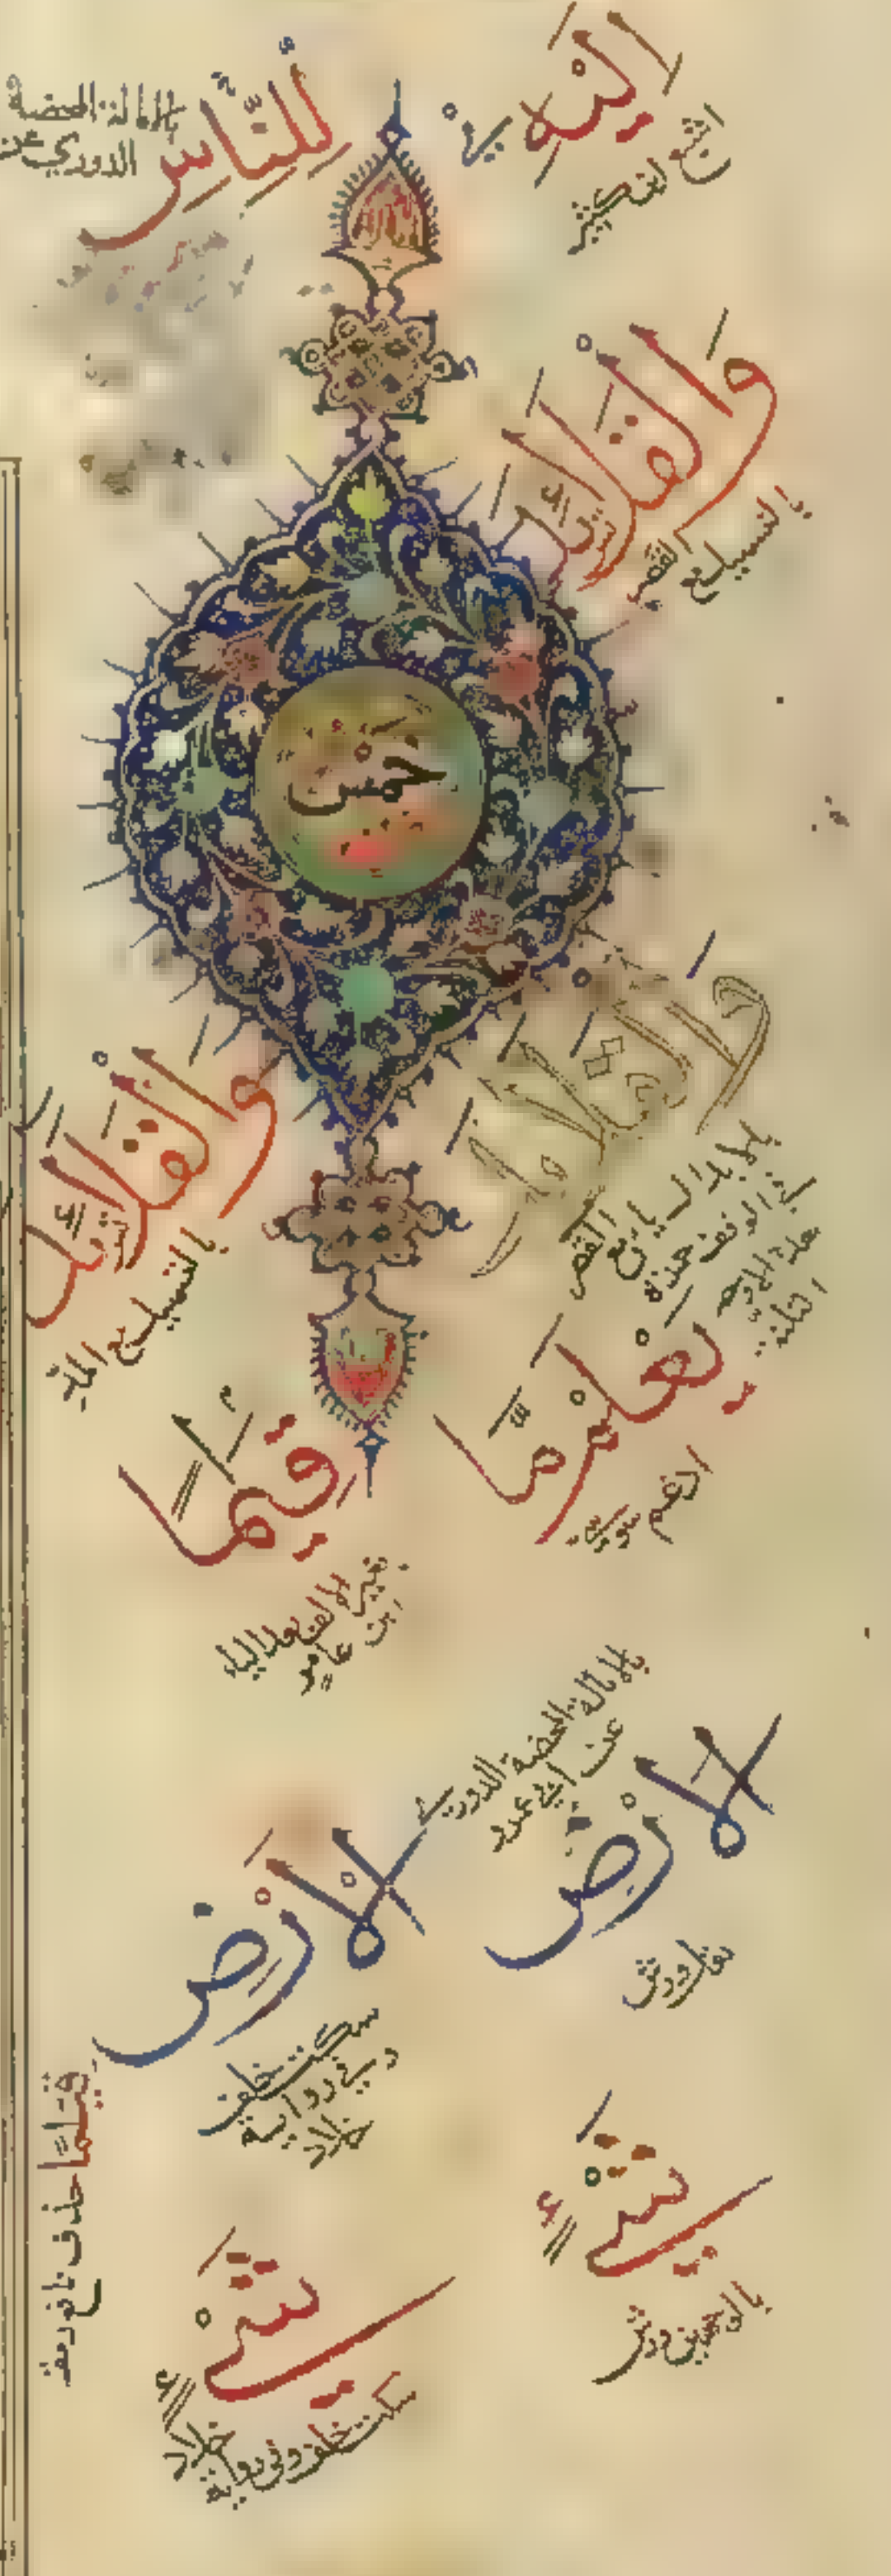 إِلَيْهِ
اشبع ابن كثير
لِلنَّاسِ
بالامالة المحضة
الدوري عن
وَالْقَلَائِدَ
بالتسهيل مع القصر
خَمْس
وَالْقَلَائِدَ
بالتسهيل مع المد
وَالْقَلَايِدَ
بالابدال ياء مع القصر
في الوقف حمزة
الثلثة
يَعْلَم مَّا
ادغم سوسي
قِيَمًا
بغير الالف بعد الياء
ابن عامر
بالامالة المحضة الدوري
عن ابي عمرو
الْاَرْضِ
نقل ورش
الْاَرْضِ
سكت خلف
وفي رواية
خلاد
قِيَمًا حذف نافع رمز
شَيْءٍ
بالوجهين ورش
شَيْءٍ
سكت خلف وفي رواية
خلاد